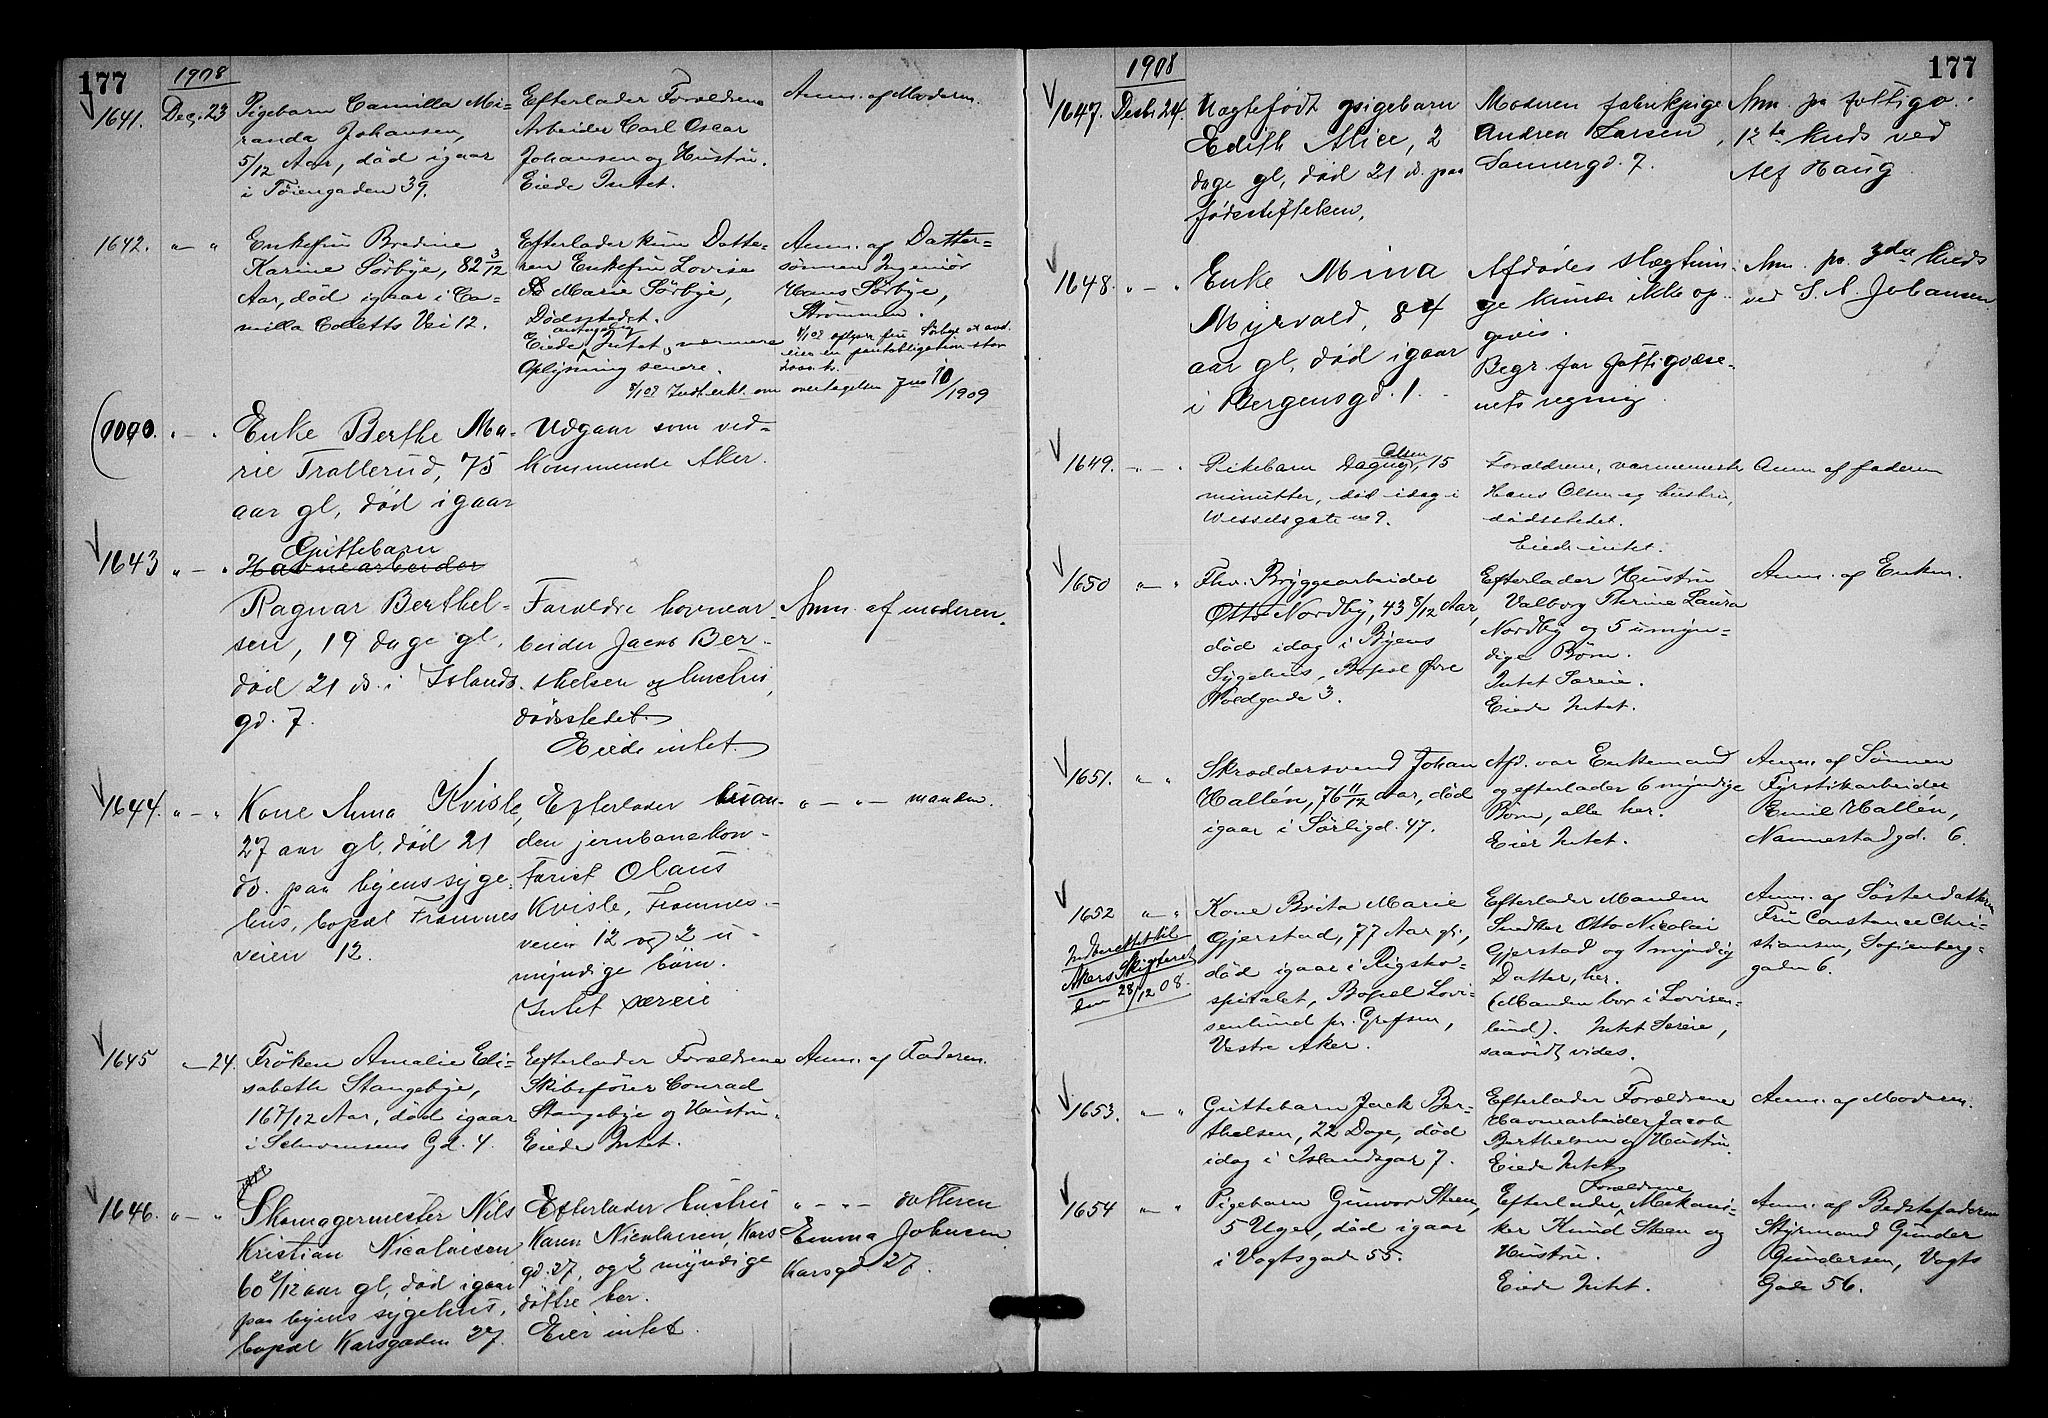 177
1908
1641. Dec. 23
Pigebarn Camilla Mi-
randa Johansen,
5/12 Aar, død igaar
i Tøiengaden 39.
Efterlader Forældrene
Arbeider Carl Oscar
Johansen og Hustru.
Eiede Intet.
Anm. af Moderen.
1642. " — "
Enkefru Bredine
Karine Sørbye, 82 3/12
Aar, død igaar i Ca-
milla Colletts Vei 12.
Efterlader kun Datte-
ren Enkefru Lovise
Marie Sørbye,
Dødsstedet.
antagelig
Eiede Intet, nærmere
Oplysning senere.
Anm. af Datter-
sønnen Ingeniør
Hans Sørbye,
Strømmen.
oplyser fru Sørbye at avd.
eier en pantobligation stor
2000 kr.
8/1 09 Indh. erkl. om overtagelse Jno 10/1909
" — "
Enke Berthe Ma-
rie Trallerud, 75
aar gl, død igaar
Udgaar som ved-
kommende Aker.
1643 " — "
Guttebarn
Havnearbeider
Ragnar Berthel-
sen, 19 dage gl,
død 21 ds. i Islands
gd. 7.
Forældre havnear-
beider Jacob Ber-
thelsen og hustru,
dødsstedet.
Eiede intet.
Anm. af moderen.
1644. " — "
Kone Anna Kvisle,
27 aar gl, død 21
ds. paa byens syge-
hus, bopæl Framnes
veien 12.
Efterlader man-
den jernbanekon-
torist Olaus
Kvisle, Framnes-
veien 12 og 2 u-
myndige børn.
Intet særeie
" — " — manden.
1645 — 24.
Frøken Amalie Eli-
sabeth Stangebye,
16 7/12 Aar, død igaar
i Schwensens Gd. 4.
Efterlader Forældrene
Skibsfører Conrad
Stangebye og Hustru.
Eiede Intet.
Anm. af Faderen.
1646. " — "
Skomagermester Nils
Kristian Nicolaisen
60 2/12 aar gl, død igaar
paa byens sygehus,
bopæl Karsgaden 27.
Efterlader hustru
Karen Nicolaisen, Kars
gd. 27, og 2 myndige
døttre her.
Eier intet.
" — " — datteren
Emma Johnsen
Karsgd 27.
177
1908
1647. Desb. 24.
Uægtefødt pigebarn
Edith Alice, 2
dage gl, død 21 ds. paa
fødselstiftelsen.
Moderen fabrikpige
Andrea Larsen,
Sannergd. 7.
Anm. pr fattigv.
12te kreds ved
Alf Haug
1648. " — "
Enke Mina
Myrvold, 84
aar gl, død igaar
i Bergensgd. 1.
Afdødes slægtnin-
ge kunde ikke op-
gives.
Begr. for fattigvæse-
nets regning.
Anm. pr. kreds
ved S. A. Johansen
1649. " — "
Pikebarn Dagny Olsen, 15
minutter, død idag i
Wesselsgate no 9.
Forældrene, varmemester
Hans Olsen og hustru,
dødsstedet.
Eiede intet.
Anm af faderen
1650 " — "
Fhv. Bryggearbeider
Otto Nordby, 43 8/12 Aar,
død idag i Byens
Sygehus, Bopæl Øvre
Voldgade 3.
Efterlader Hustru
Valborg Thrine Laura
Nordby og 5 umyn-
dige Børn.
Intet Særeie.
Eiede Intet.
Anm. af Enken.
1651. " "
Skræddersvend Johan
Hallén, 76 11/12 Aar, død
igaar i Sørligd. 47.
Afd. var Enkemand
og efterlader 6 myndige
Børn, alle her.
Eier Intet.
Anm. af Sønnen
Fyrstikarbeider
Emil Hallén,
Nannestadgd. 6.
1652 " — "
Indberettet til
Akers Skifteret
den 28/12 08.
Kone Brita Marie
Gjerstad, 77 Aar gl.,
død igaar i Rigsho-
spitalet, Bopæl Lovi-
senlund pr. Grefsen,
Vestre Aker.
Efterlader Manden
Snedker Otto Nicolai
Gjerstad og 1 myndig
Datter, her.
(Manden bor i Lovisen-
lund). Intet Særeie,
saavidt vides.
Anm. af Søsterdatteren
Fru Constance Chri-
stiansen, Sofienberg-
gaden 6.
1653. " — "
Guttebarn Jack Ber-
thelsen, 22 Dage, død
idag i Islandsgae 7.
Efterlader Forældrene
Havnearbeider Jacob
Berthelsen og Hustru.
Eiede Intet.
Anm. af Moderen.
1654 " — "
Pigebarn Gunvor Steen,
5 Uger, død igaar
i Vogtsgade 55.
Forældrene
Efterlader, Mekani-
ker Knud Steen og
Hustru.
Eiede Intet.
Anm. af Bedstefaderen
Styrmand Gunder
Gundersen, Vogts
Gade 56.